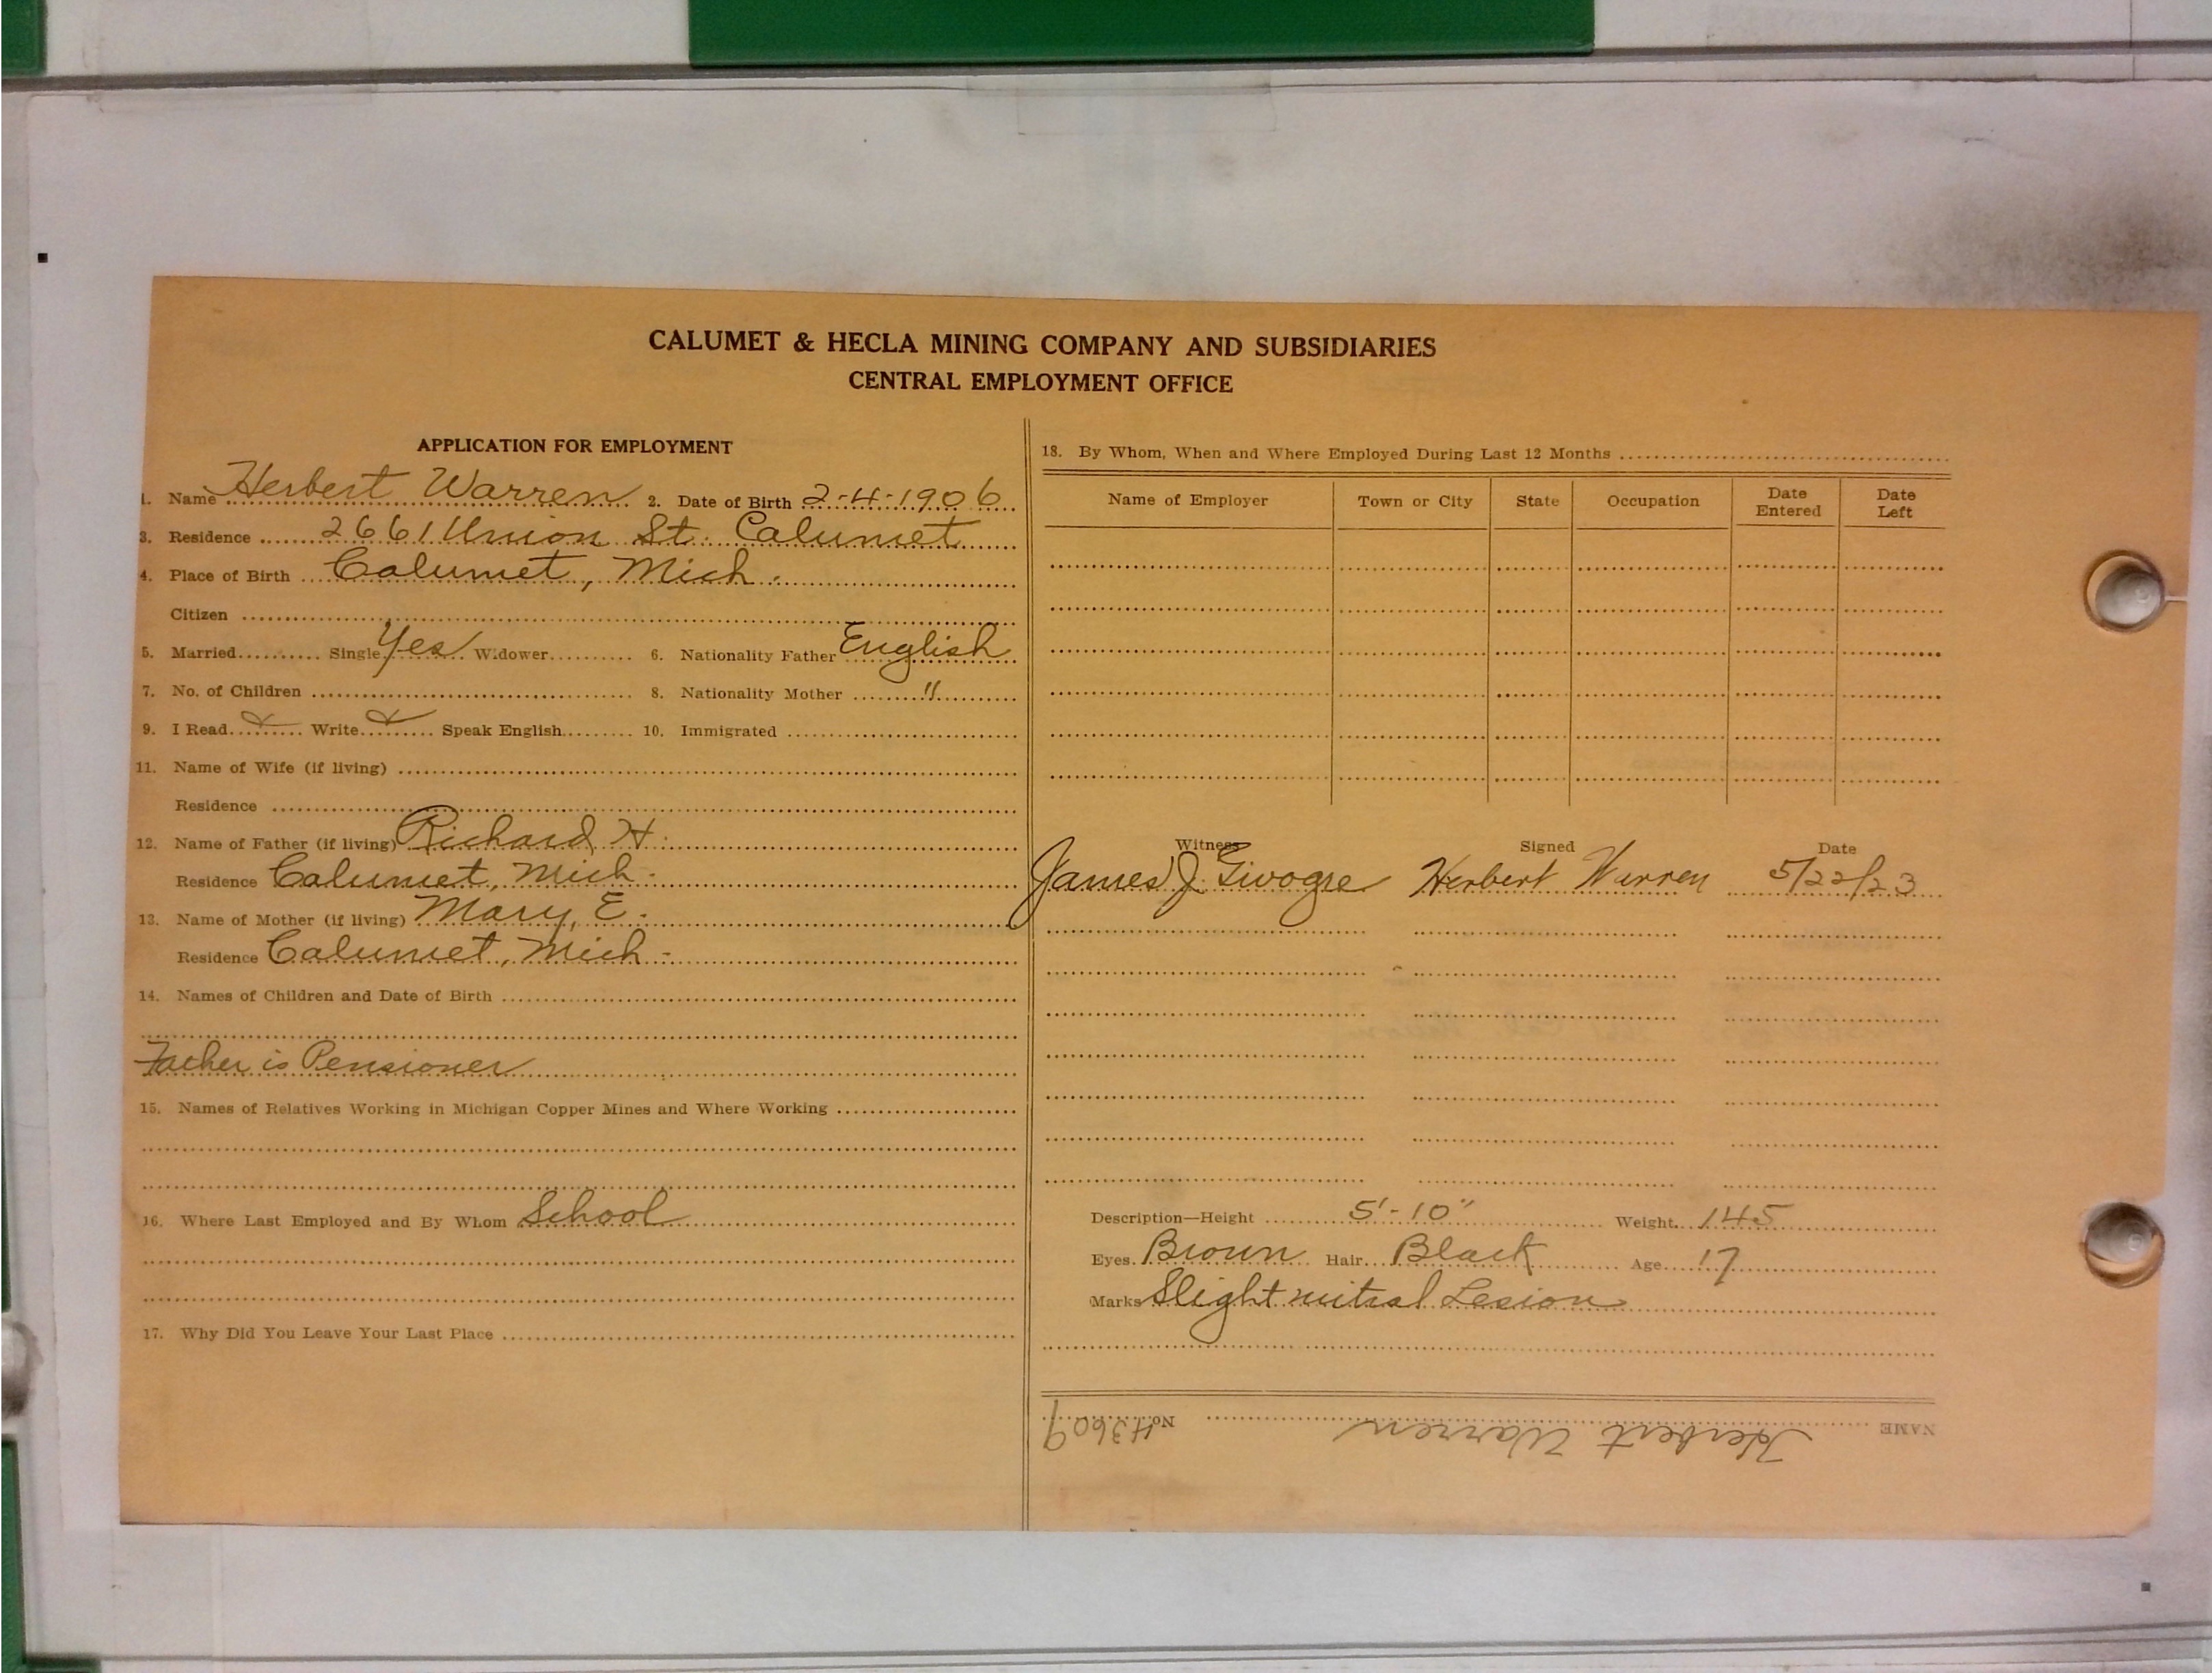 CALUMET & HECLA MINING COMPANY AND SUBSIDIARIES
CENTRAL EMPLOYMENT OFFICE
APPLICATION FOR EMPLOYMENT
1. Name Herbert Warren 2. Date of Birth 2-4-1906
3. Residence 2661 Union St. Calumet
4. Place of Birth Calumet, Mich.
Citizen
5. Married Single Yes Widower 6. Nationality Father English
7. No. of Children 8. Nationality Mother "
9. I Read Write Speak English 10. Immigrated
11. Name of Wife (if living)
Residence
12. Name of Father (if living) Richard H.
Residence Calumet, Mich.
13. Name of Mother (if living) Mary, E.
Residence Calumet, Mich.
14. Names of Children and Date of Birth
Father is Pensioner
15. Names of Relatives Working in Michigan Copper Mines and Where Working
16. Where Last Employed and By Whom School
17. Why Did You Leave Your Last Place
18. By Whom, When and Where Employed During Last 12 Months
Name of Employer Town or City State Occupation Date Entered Date Left
Witness Signed Date
James J. Herbert Warren 5/22/23
Description—Height 5'-10" Weight 145
Eyes Brown Hair Black Age 17
Marks Slight mitral Lesion
NAME Herbert Warren No. H3609